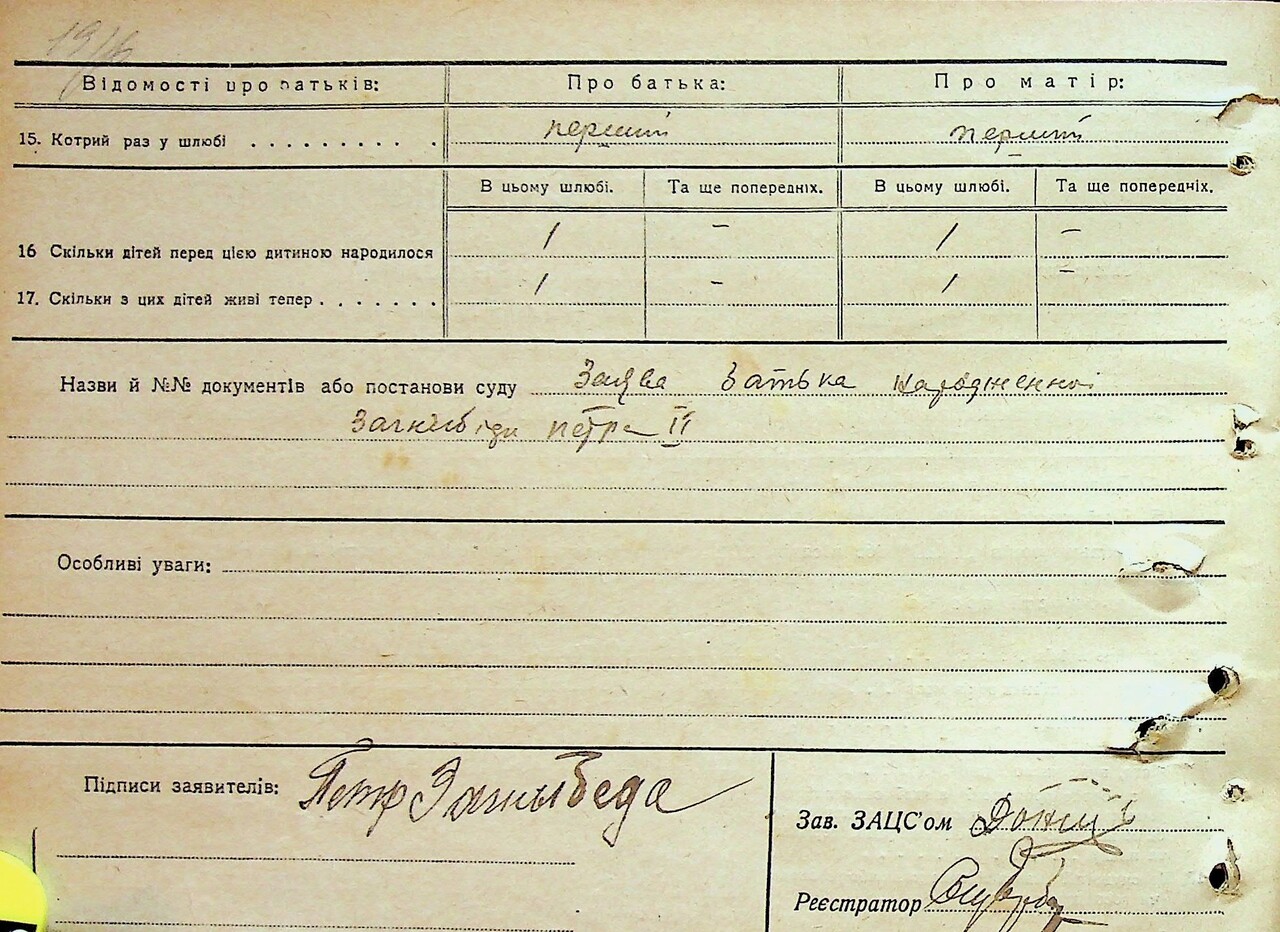 19/6
Відомості про батьків: Про батька: Про матір:
15. Котрий раз у шлюбі . . . . . . . . . . перший перший
В цьому шлюбі. Та ще попередніх. В цьому шлюбі. Та ще попередніх.
16 Скільки дітей перед цією дитиною народилося 1 – 1 –
17. Скільки з цих дітей живі тепер . . . . . . . 1 – 1 –
Назви й №№ документів або постанови суду Заява батька народженної
Загнибіди Петра II
Особливі уваги:
Підписи заявителів: Петр Загныбеда
Зав. ЗАЦС'ом
Реєстратор